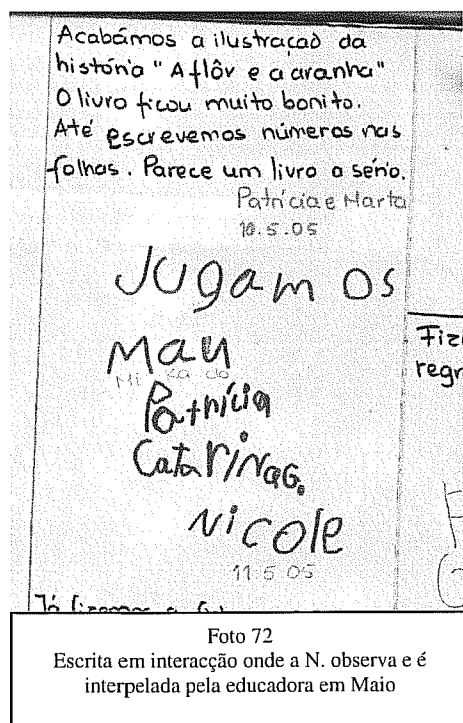 Acabámos a ilustraçaõ da
história "A flôr e a aranha"
O livro ficou muito bonito.
Até escrevemos números nas
folhas. Parece um livro a sério.
Patrícia e Marta
10.5.05
Jugamos
Mau
Patrícia
Catarina G.
Nicole
11.5.05
Já fizemos a
Fiz
regr
Foto 72
Escrita em interacção onde a N. observa e é
interpelada pela educadora em Maio